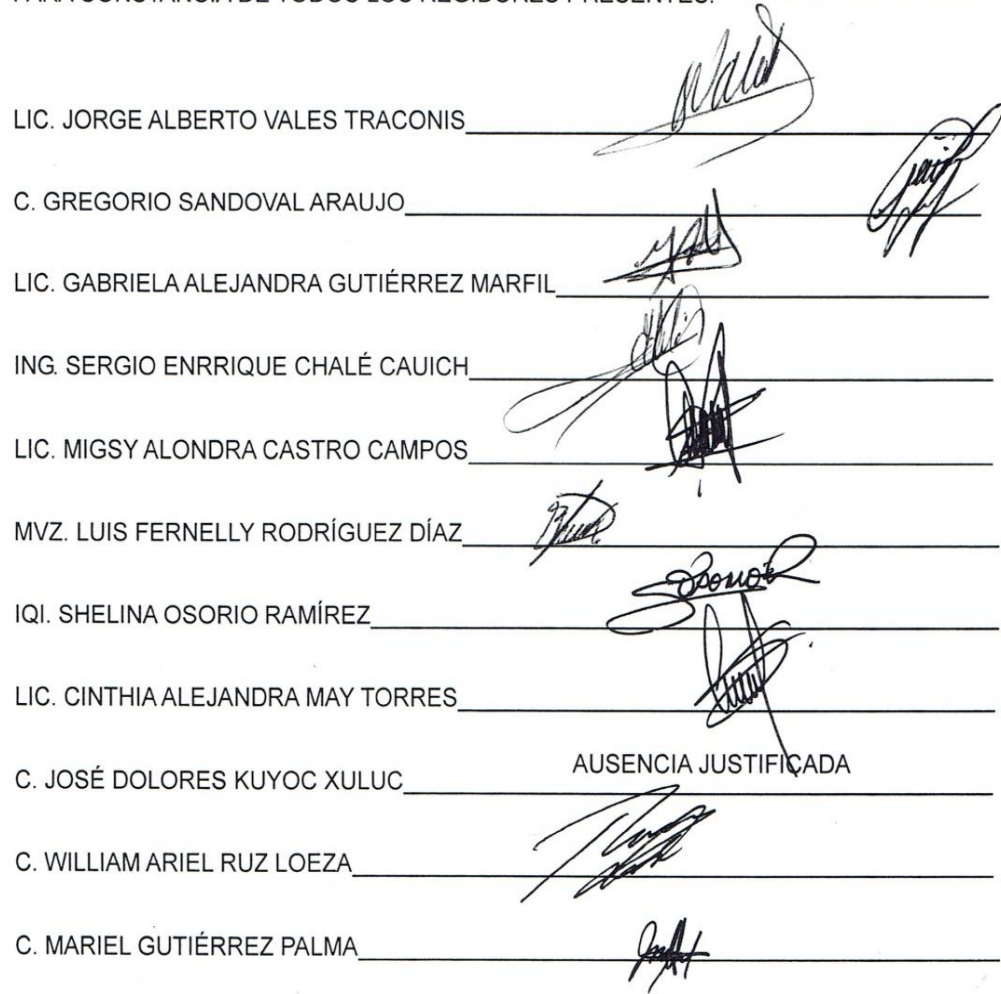 PARA CONSTANCIA DE TODOS LOS REGIDORES PRESENTES.
LIC. JORGE ALBERTO VALES TRACONIS
C. GREGORIO SANDOVAL ARAUJO
LIC. GABRIELA ALEJANDRA GUTIÉRREZ MARFIL
ING. SERGIO ENRRIQUE CHALÉ CAUICH
LIC. MIGSY ALONDRA CASTRO CAMPOS
MVZ. LUIS FERNELLY RODRÍGUEZ DÍAZ
IQI. SHELINA OSORIO RAMÍREZ
LIC. CINTHIA ALEJANDRA MAY TORRES
C. JOSÉ DOLORES KUYOC XULUC AUSENCIA JUSTIFICADA
C. WILLIAM ARIEL RUZ LOEZA
C. MARIEL GUTIÉRREZ PALMA